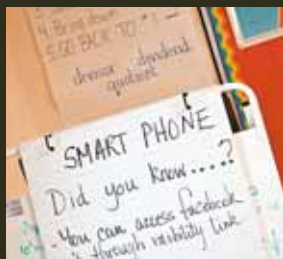 4. Bring down
5. GO BACK TO #1
divisor dividend
quotient
SMART PHONE
Did you know....?
- You can access facebook
through mibility link